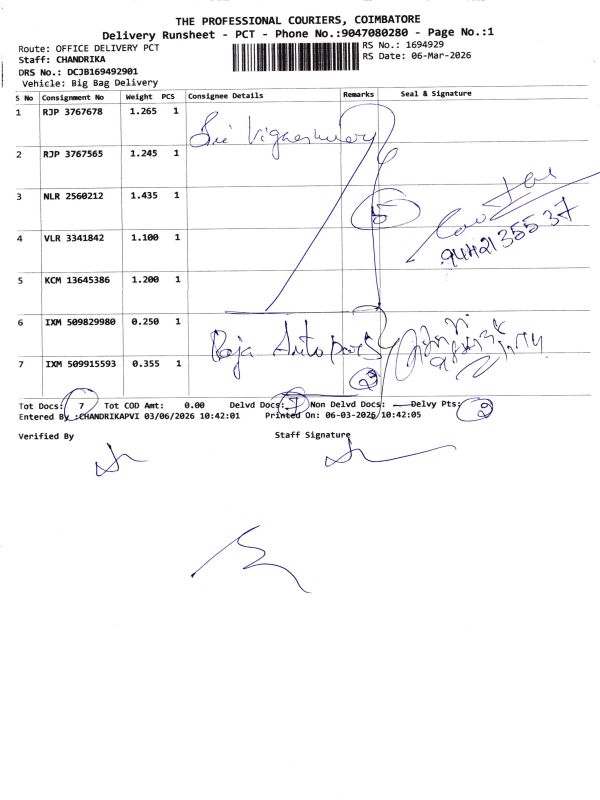 THE PROFESSIONAL COURIERS, COIMBATORE
Delivery Runsheet - PCT - Phone No.:9047080280 - Page No.:1
Route: OFFICE DELIVERY PCT RS No.: 1694929
Staff: CHANDRIKA RS Date: 06-Mar-2026
DRS No.: DCJB169492901
Vehicle: Big Bag Delivery
S No Consignment No Weight PCS Consignee Details Remarks Seal & Signature
1 RJP 3767678 1.265 1
Sri Vigneshwara
2 RJP 3767565 1.245 1
3 NLR 2560212 1.435 1
5
4 VLR 3341842 1.100 1
9442135537
5 KCM 13645386 1.200 1
6 IXM 509829980 0.250 1
Raja Auto parts
7 IXM 509915593 0.355 1
2
Tot Docs: 7 Tot COD Amt: 0.00 Delvd Docs: 7 Non Delvd Docs: — Delvy Pts: 2
Entered By :CHANDRIKAPVI 03/06/2026 10:42:01 Printed On: 06-03-2026 10:42:05
Verified By Staff Signature